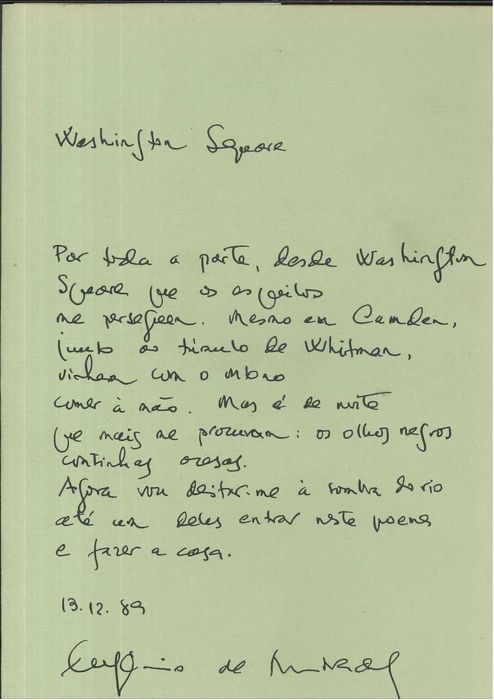 Washington Square
Por toda a parte, desde Washington
Square que os esquilos
me perseguem. Mesmo em Camden,
junto ao túmulo de Whitman,
vinham com o outono
comer à mão. Mas é de noite
que mais me procuram: os olhos negros
continhas acesas.
Agora vou deitar-me à sombra do rio
até um deles entrar neste poema
e fazer a casa.
13.12.89
Eugénio de Andrade